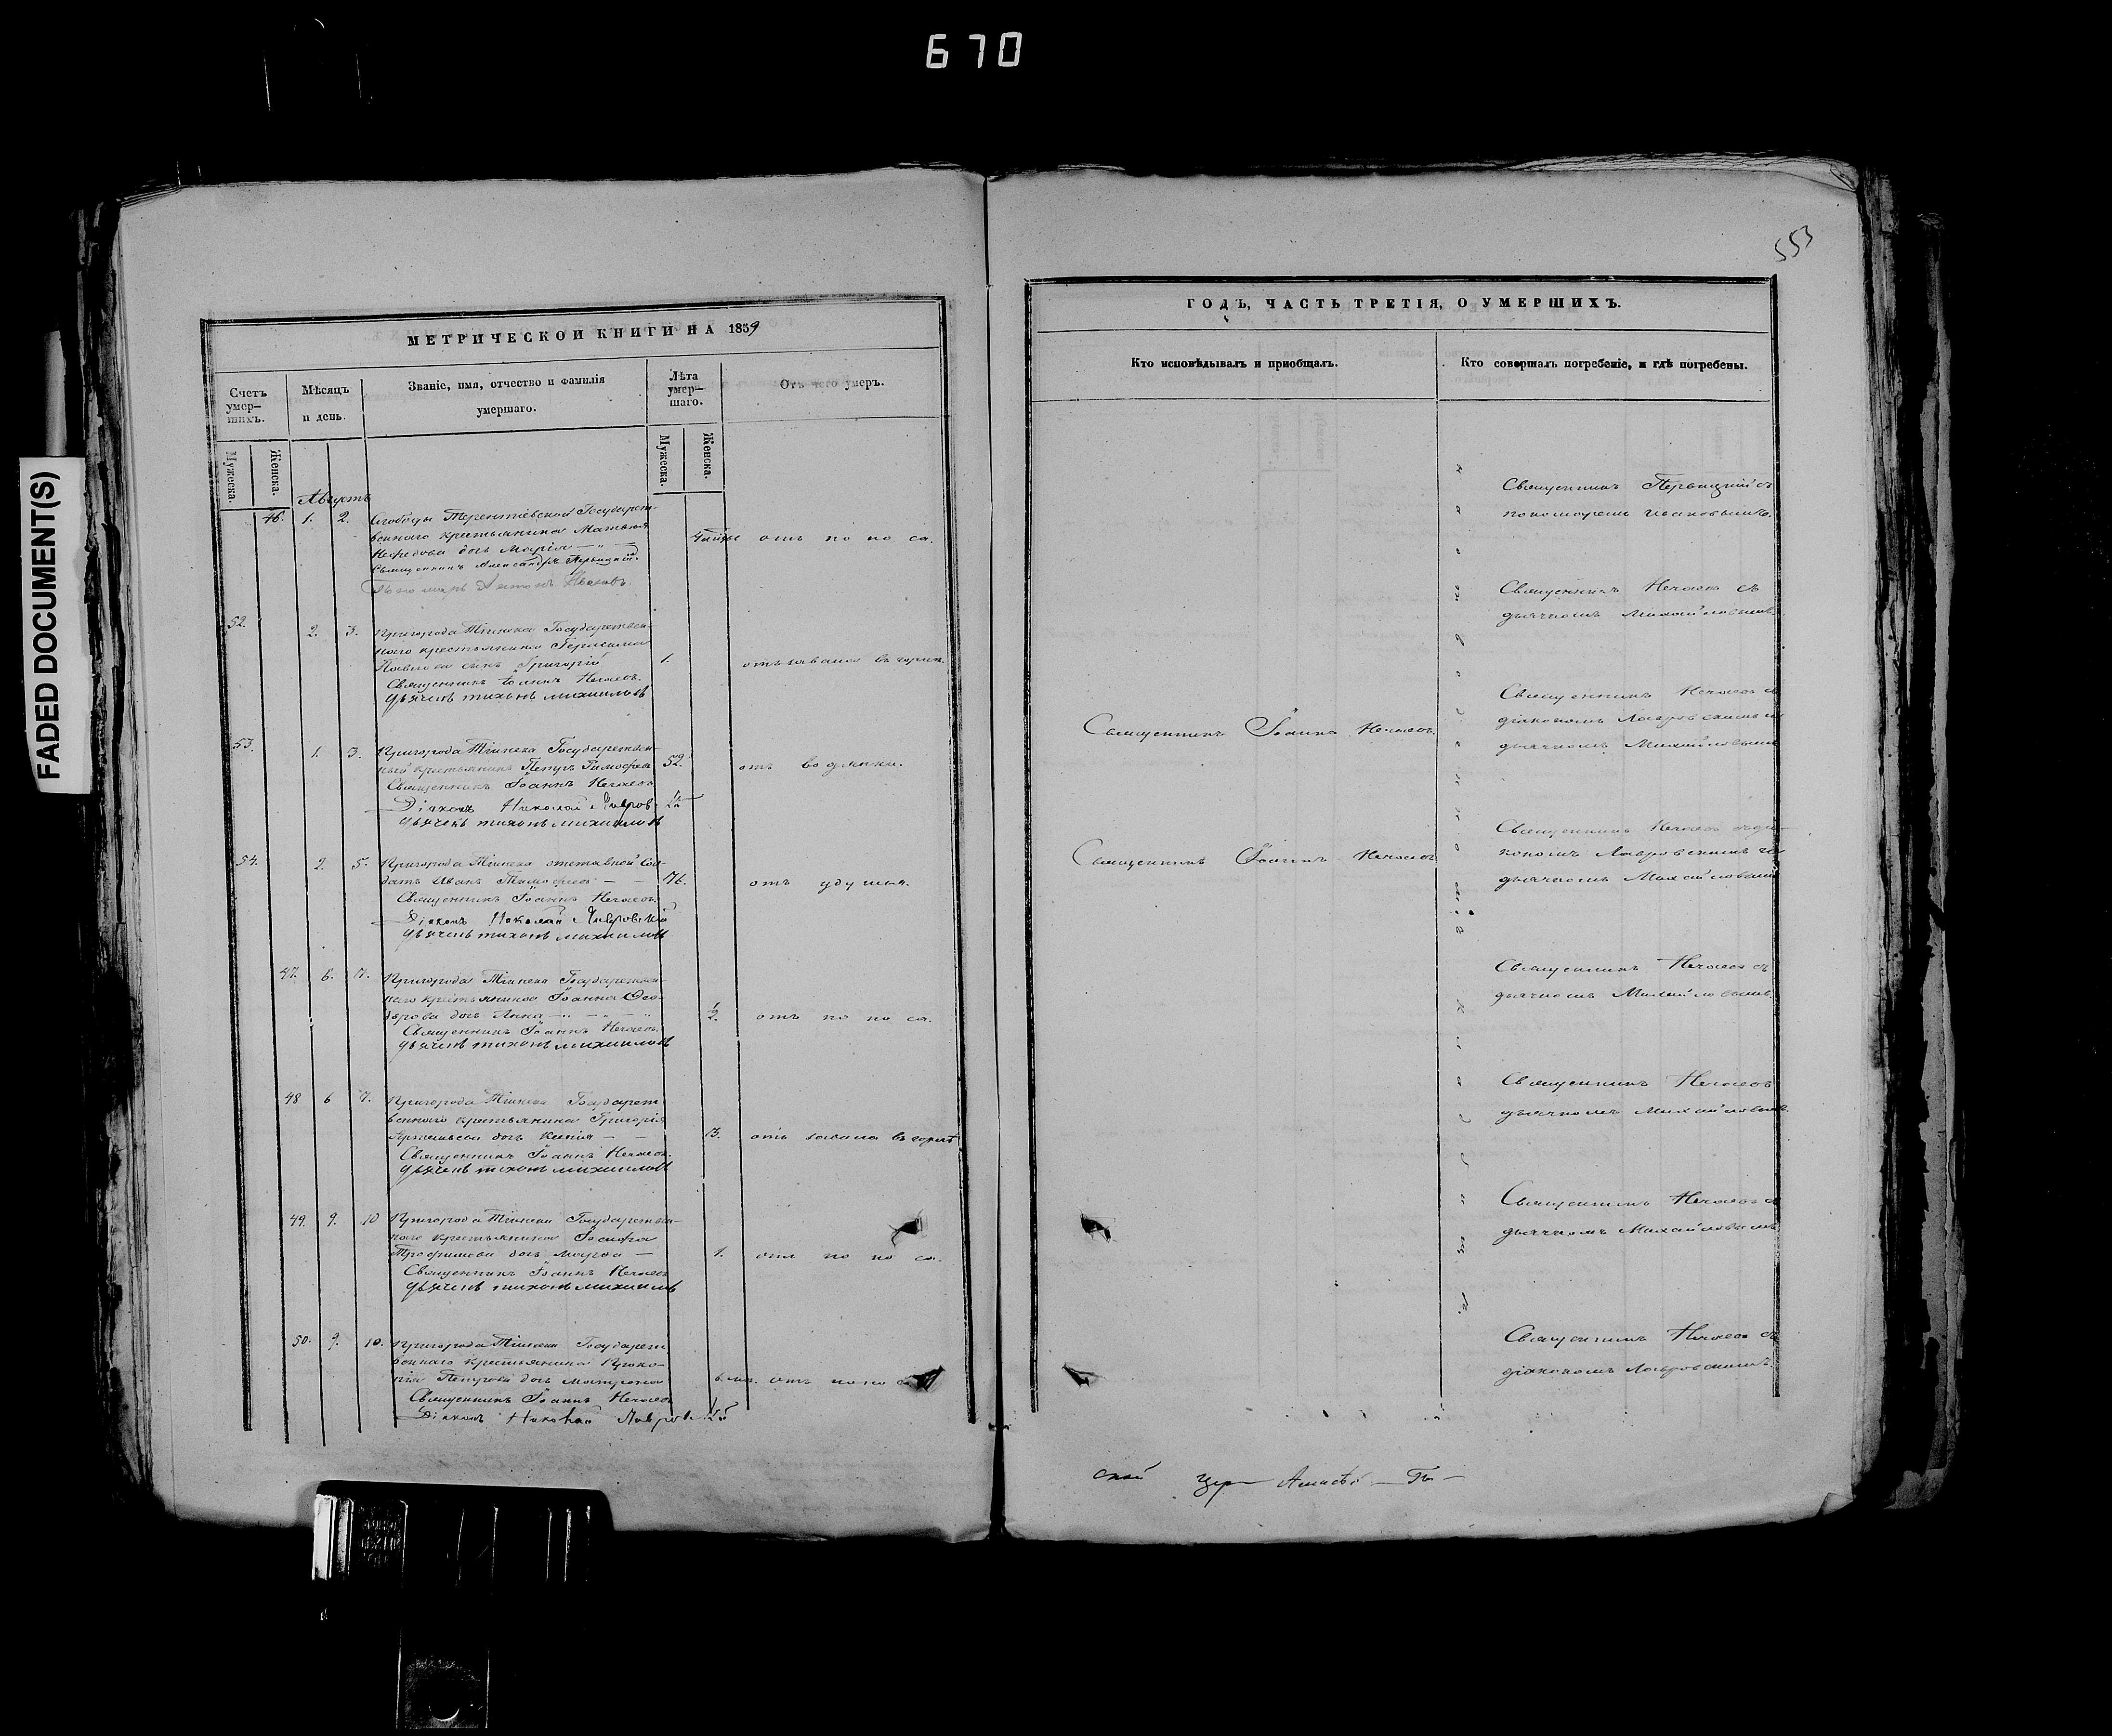 670
FADED DOCUMENT(S)
553
МЕТРИЧЕСКОЙ КНИГИ НА 1859
Счетъ умер-шихъ.
Мѣсяцъ и день.
Званіе, имя, отчество и фамилія умершаго.
Лѣта умер-шаго.
Отъ чего умеръ.
Мужеска.
Женска.
Мужеска.
Женска.
Августъ
46. 1. 2. Слободы Терентіевской Государст-
веннаго крестьянина Матвея
Нефедова дочь Марія
отъ поноса.
Священникъ Александръ
52. 2. 3. Пригорода Тіинска Государствен-
наго крестьянина Герасима
Павлова сынъ Григорій 1.
Священникъ Іоаннъ Нечаевъ.
дьячекъ тихонъ михаиловъ
53. 1. 3. Пригорода Тіинска Государствен-
ный крестьянинъ Петръ Тимофеев 52. отъ водянки.
Священникъ Іоаннъ Нечаевъ
Діаконъ Николай Лавровскій
дьячекъ тихонъ михаиловъ
54. 2. 5. Пригорода Тіинска отставной Сол-
датъ Иванъ Тимофеев 76. отъ удушья.
Священникъ Іоаннъ Нечаевъ.
Діаконъ Николай Лавровскій
дьячекъ тихонъ михаиловъ
47. 6. 7. Пригорода Тіинска Государствен-
наго крестьянина Іоанна Ѳео-
дорова дочь Анна ½. отъ поноса.
Священникъ Іоаннъ Нечаевъ.
дьячекъ тихонъ михаиловъ
48 6 7. Пригорода Тіинска Государст
веннаго крестьянина Григорія
дочь Ксенія 3.
Священникъ Іоаннъ Нечаевъ.
дьячекъ тихонъ михаиловъ
49. 9. 10 Пригорода Тіинска Государствен-
наго крестьянина
Трофимова дочь Марѳа 1. отъ поноса.
Священникъ Іоаннъ Нечаевъ
дьячекъ тихонъ михаиловъ
50. 9. 10. Пригорода Тіинска Государст
веннаго крестьянина Проко-
пія Петрова дочь Матрона отъ поноса
Священникъ Іоаннъ Нечаевъ
Діаконъ Николай Лавровскій
ГОДЪ, ЧАСТЬ ТРЕТІЯ, О УМЕРШИХЪ.
Кто исповѣдывалъ и пріобщалъ.
Кто совершалъ погребеніе, и гдѣ погребены.
Священникъ съ
пономаремъ Ивановымъ.
Священникъ Нечаевъ съ
дьячкомъ Михайловымъ
Священникъ Іоаннъ Нечаевъ.
Священникъ Нечаевъ съ
діакономъ Лавровскимъ и
дьячкомъ Михайловымъ
Священникъ Іоаннъ Нечаевъ
Священникъ Нечаевъ съ діа-
кономъ Лавровскимъ и
дьячкомъ Михайловымъ
Священникъ Нечаевъ съ
дьячкомъ Михайловымъ.
Священникъ Нечаевъ
дьячкомъ Михайловымъ.
Священникъ Нечаевъ съ
дьячкомъ Михайловымъ
Священникъ Нечаевъ съ
діакономъ Лавровскимъ
ской